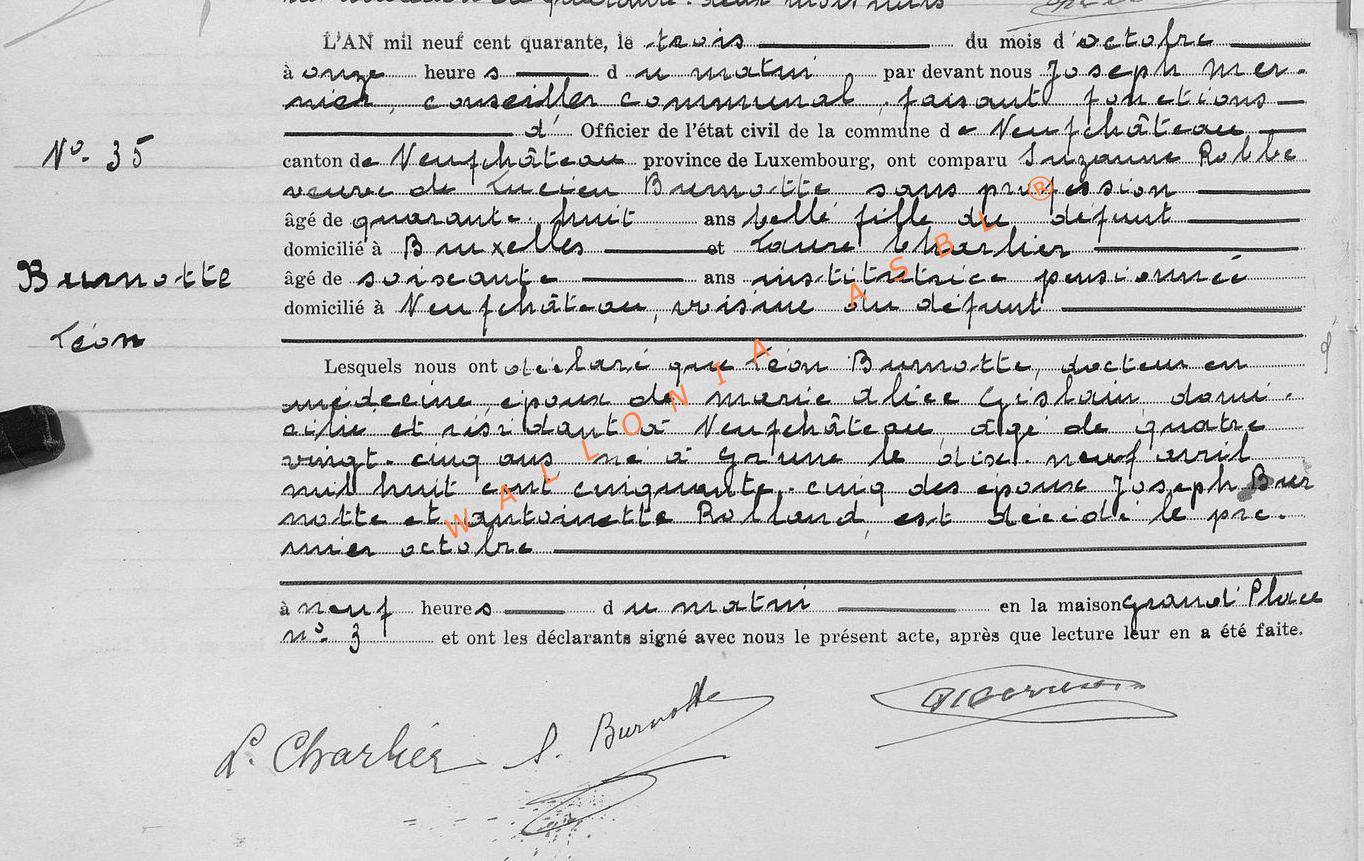 L'AN mil neuf cent quarante, le trois du mois d'octobre
à onze heures du matin par devant nous Joseph Mer-
nier, conseiller communal, faisant fonctions
d' Officier de l'état civil de la commune de Neufchâteau
N° 35
canton de Neufchâteau province de Luxembourg, ont comparu Suzanne Robbe
veuve de Lucien Burnotte sans profession
âgé de quarante-huit ans belle fille du défunt
domicilié à Bruxelles et Laure Charlier
Burnotte
Léon
âgé de soixante ans institutrice pensionnée
domicilié à Neufchâteau, voisine du défunt
Lesquels nous ont déclaré que Léon Burnotte, docteur en
médecine, époux de Marie Alice Gislain, domi-
cilié et résidant à Neufchâteau, âgé de quatre
vingt-cinq ans né à Grune le dix-neuf avril
mil huit cent cinquante-cinq des époux Joseph Bur
notte et Antoinette Rolland, est décédé le pre-
mier octobre
à neuf heures du matin en la maison Grand'Place
n° 3 et ont les déclarants signé avec nous le présent acte, après que lecture leur en a été faite.
L. Charlier S. Burnotte
WALLONIA ASBL ®